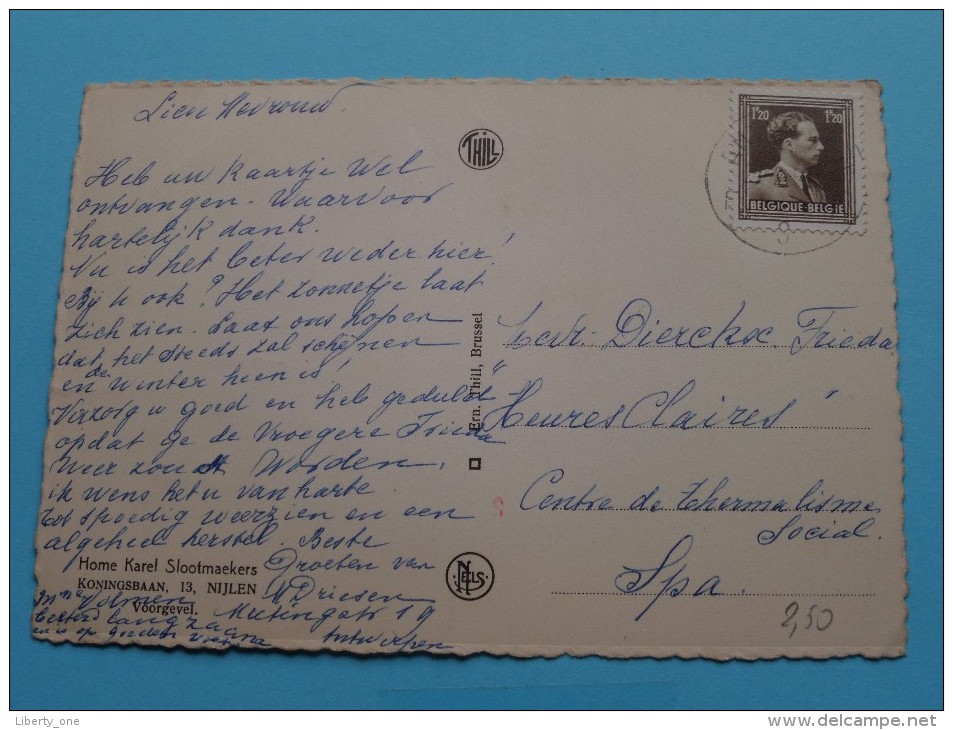 Lieve Mevrouw.
Heb uw kaartje Wel
ontvangen. Waarvoor
hartelijk dank.
Nu is het beter weder hier!
Bij u ook? Het zonnetje laat
zich zien. Laat ons hopen
dat het steeds zal schijnen
en de winter heen is!
Verzorg u goed en heb geduld
opdat ge de Vroegere Frieda
Weer zou Worden.
ik wens het u van harte
Tot spoedig weerzien en een
algeheel herstel. Beste
Groeten van
Driesen
19
Antwerpen
langzaam
en is op goeden
Home Karel Slootmaekers
KONINGSBAAN, 13, NIJLEN
Voorgevel.
THILL
Ern. Thill, Brussel
NELS
1F20 1F20
BELGIQUE-BELGIË
9
Mevr. Dierckx Frieda
"Heures Claires"
Centre de Thermalisme
Social.
Spa.
2,50
Liberty_one
www.delcampe.net